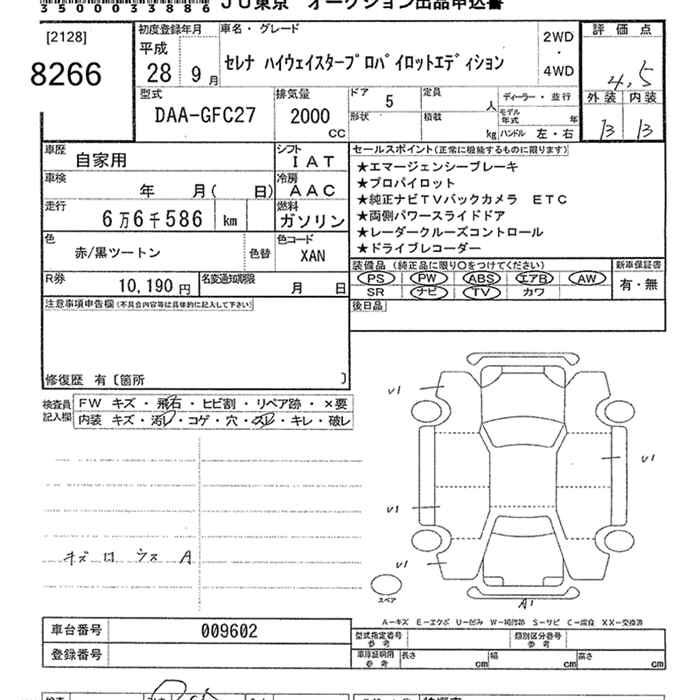 35000333886 JU東京 オークション出品申込書
[2128]
8266
初度登録年月
平成
28年 9月
車名・グレード
セレナ ハイウェイスタープロパイロットエディション
2WD
・
4WD
評価点
4,5
外装 内装
B B
型式
DAA-GFC27
排気量
2000
CC
ドア 5
形状
定員 人
積載 kg
ディーラー・並行
モデル年式 年
ハンドル 左・右
車歴
自家用
シフト
IAT
車検
年 月( 日)
冷房
AAC
走行
6万6千586 km
燃料
ガソリン
色
赤/黒ツートン
色替
色コード
XAN
R券
10,190円
名変通知期限
月 日
セールスポイント(正常に機能するものに限ります)
★エマージェンシーブレーキ
★プロパイロット
★純正ナビTVバックカメラ ETC
★両側パワースライドドア
★レーダークルーズコントロール
★ドライブレコーダー
装備品(純正品に限り○をつけてください)
PS PW ABS エアB AW
SR ナビ TV カワ
新車保証書
有・無
後日品
注意事項申告欄(不具合内容等は具体的に記入して下さい)
修復歴 有〔箇所 〕
検査員記入欄
FW キズ・飛石・ヒビ割・リペア跡・×要
内装 キズ・汚レ・コゲ・穴・スレ・キレ・破レ
キズ ロ ウス A
U1
U1
U1
U1
A1
スペア
A-キズ E-エクボ U-凹み W-補修跡 S-サビ C-腐食 XX-交換済
車台番号 009602
登録番号
型式指定番号 参考
類別区分番号 参考
車庫証明用 参考
長さ cm
幅 cm
高さ cm